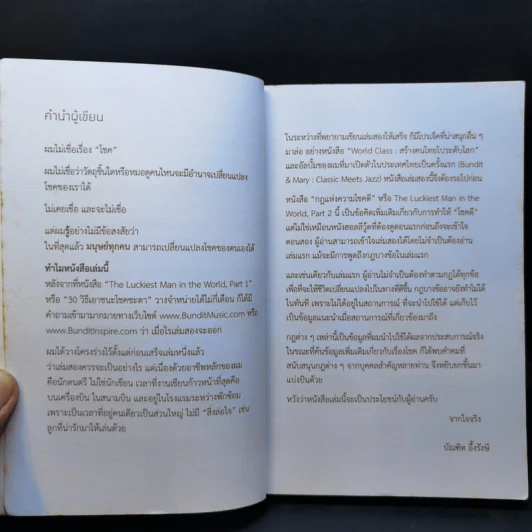 คำนำผู้เขียน
ผมไม่เชื่อเรื่อง "โชค"
ผมไม่เชื่อว่าวัตถุชิ้นใดหรือหมอดูคนไหนจะมีอำนาจเปลี่ยนแปลง
โชคของเราได้
ไม่เคยเชื่อ และจะไม่เชื่อ
แต่ผมรู้อย่างไม่มีข้อสงสัยว่า
ในที่สุดแล้ว มนุษย์ทุกคน สามารถเปลี่ยนแปลงโชคของตนเองได้
ทำไมหนังสือเล่มนี้
หลังจากที่หนังสือ "The Luckiest Man in the World, Part 1"
หรือ "30 วิธีเอาชนะโชคชะตา" วางจำหน่ายได้ไม่กี่เดือน ก็ได้มี
คำถามเข้ามามากมายทางเว็บไซต์ www.BunditMusic.com หรือ
www.BunditInspire.com ว่า เมื่อไรเล่มสองจะออก
ผมได้วางโครงร่างไว้ตั้งแต่ก่อนเสร็จเล่มหนึ่งแล้ว
ว่าเล่มสองควรจะเป็นอย่างไร แต่เนื่องด้วยอาชีพหลักของผม
คือนักดนตรี ไม่ใช่นักเขียน เวลาที่งานเขียนก้าวหน้าที่สุดคือ
บนเครื่องบิน ในสนามบิน และอยู่ในโรงแรมระหว่างพักซ้อม
เพราะเป็นเวลาที่อยู่คนเดียวเป็นส่วนใหญ่ ไม่มี "สิ่งล่อใจ" เช่น
ลูกที่น่ารักมาให้เล่นด้วย
ในระหว่างที่พยายามเขียนเล่มสองให้เสร็จ ก็มีโปรเจ็คที่น่าสนุกอื่น ๆ
มาล่อ อย่างหนังสือ "World Class : สร้างคนไทยไประดับโลก"
และอัลบั้มของผมที่มาเปิดตัวในประเทศไทยเป็นครั้งแรก (Bundit
& Mary : Classic Meets Jazz) หนังสือเล่มสองนี้จึงต้องรอไปก่อน
หนังสือ "กฎแห่งความโชคดี" หรือ The Luckiest Man in the
World, Part 2 นี้ เป็นข้อคิดเพิ่มเติมเกี่ยวกับการทำให้ "โชคดี"
แต่ไม่ใช่เหมือนหนังฮอลลีวู้ดที่ต้องดูตอนแรกก่อนถึงจะเข้าใจ
ตอนสอง ผู้อ่านสามารถเข้าใจเล่มสองได้โดยไม่จำเป็นต้องอ่าน
เล่มแรก แม้จะมีการพูดถึงกฎบางข้อในเล่มแรก
และเช่นเดียวกับเล่มแรก ผู้อ่านไม่จำเป็นต้องทำตามกฎได้ทุกข้อ
เพื่อที่จะให้ชีวิตเปลี่ยนแปลงไปในทางที่ดีขึ้น กฎบางข้ออาจยังทำไม่ได้
ในทันที เพราะไม่ได้อยู่ในสถานการณ์ ที่จะนำไปใช้ได้ แต่เก็บไว้
เป็นข้อมูลแนะนำเมื่อสถานการณ์ที่เกี่ยวข้องมาถึง
กฎต่าง ๆ เหล่านี้เป็นข้อมูลที่ผมนำไปใช้ได้ผลจากประสบการณ์จริง
ในขณะที่ค้นข้อมูลเพิ่มเติมเกี่ยวกับเรื่องโชค ก็ได้พบคำคมที่
สนับสนุนกฎต่าง ๆ จากบุคคลสำคัญหลายท่าน จึงหยิบยกขึ้นมา
แบ่งปันด้วย
หวังว่าหนังสือเล่มนี้จะเป็นประโยชน์กับผู้อ่านครับ
จากใจจริง
บัณฑิต อึ้งรังษี